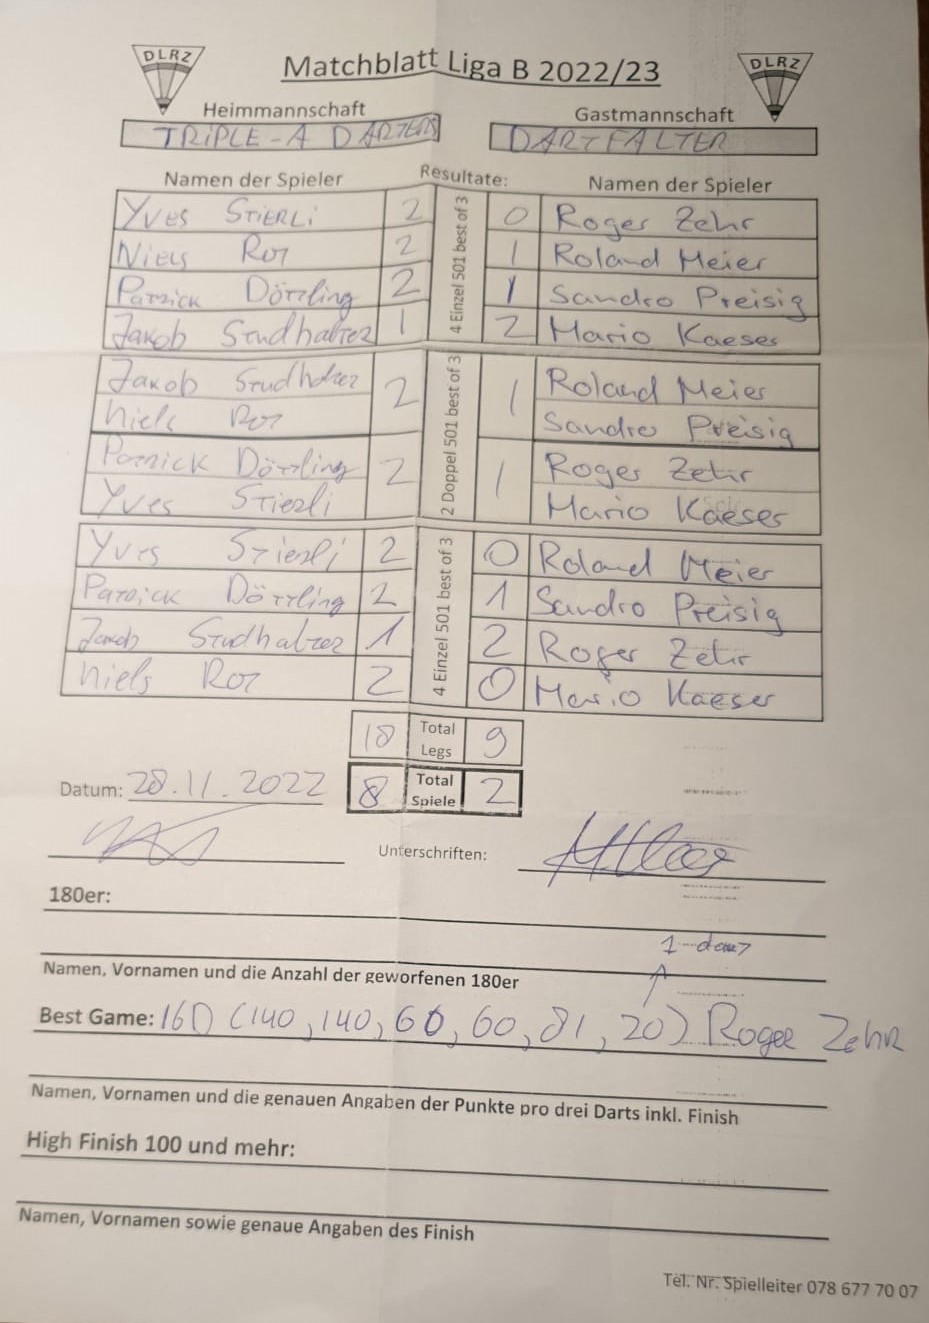 DLRZ Matchblatt Liga B 2022/23 DLRZ
Heimmannschaft Gastmannschaft
TRIPLE-A DARTERS DARTFALTER
Namen der Spieler Resultate: Namen der Spieler
4 Einzel 501 best of 3
Yves Stierli 2 0 Roger Zehr
Niels Rot 2 1 Roland Meier
Patrick Döttling 2 1 Sandro Preisig
Jakob Studhalter 1 2 Mario Kaeser
2 Doppel 501 best of 3
Jakob Studhalter 2 1 Roland Meier
Niels Rot Sandro Preisig
Patrick Döttling 2 1 Roger Zehr
Yves Stierli Mario Kaeser
4 Einzel 501 best of 3
Yves Stierli 2 0 Roland Meier
Patrick Döttling 2 1 Sandro Preisig
Jakob Studhalter 1 2 Roger Zehr
Niels Rot 2 0 Mario Kaeser
18 Total Legs 9
Datum: 28.11.2022 8 Total Spiele 2
Unterschriften:
180er:
1-dart
Namen, Vornamen und die Anzahl der geworfenen 180er
Best Game: 16D (140, 140, 60, 60, 81, 20) Roger Zehr
Namen, Vornamen und die genauen Angaben der Punkte pro drei Darts inkl. Finish
High Finish 100 und mehr:
Namen, Vornamen sowie genaue Angaben des Finish
Tel. Nr. Spielleiter 078 677 70 07